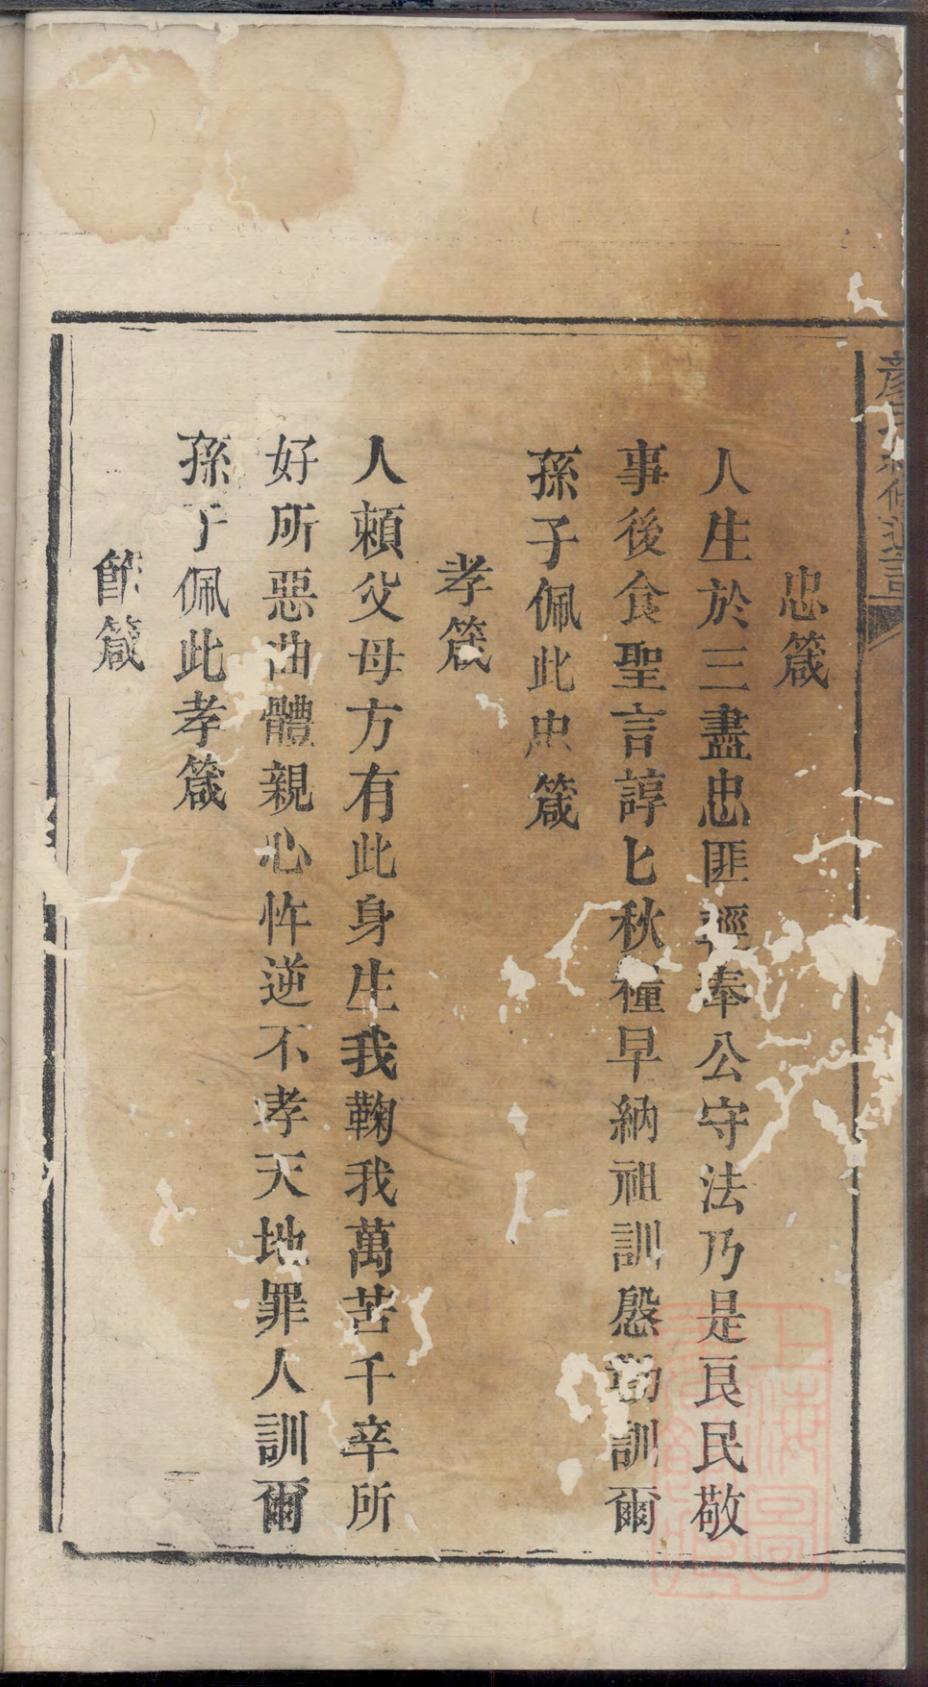 忠箴
人生於三盡忠匪輕奉公守法乃是良民敬
事後食聖言諄匕秋種早納祖訓慇勤訓爾
孫子佩此忠箴
孝箴
人頼父母方有此身生我鞠我萬苦千辛所
好所惡曲體親心忤逆不孝天地罪人訓爾
孫子佩此孝箴
箴